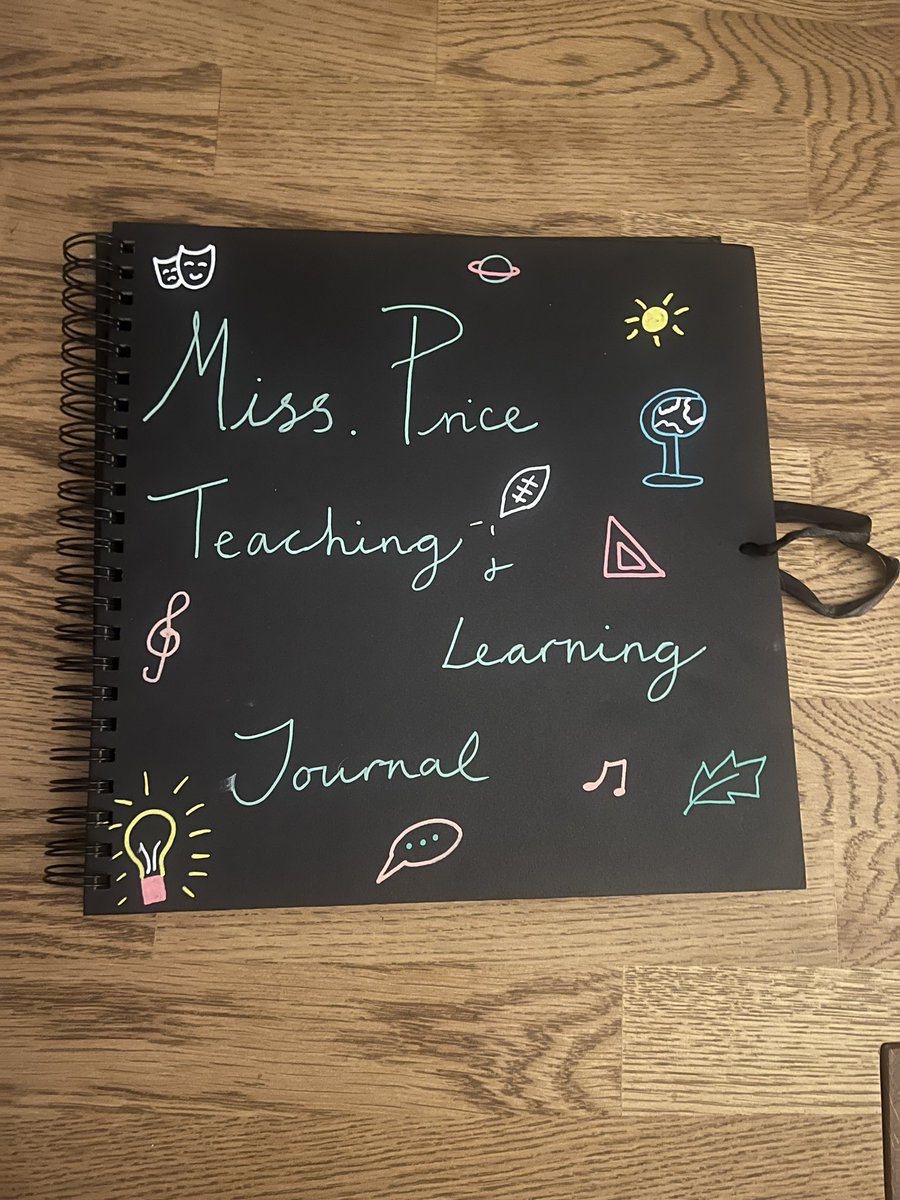 Miss. Price
Teaching &
Learning
Journal